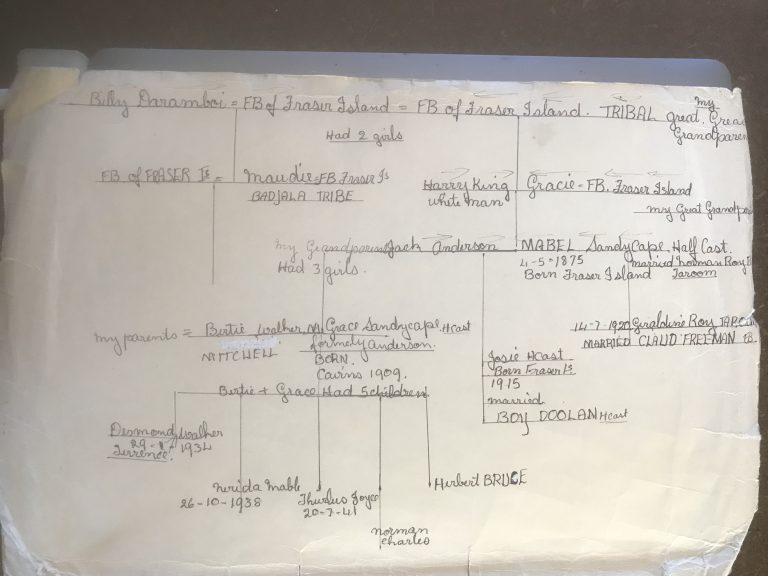 Billy Daramboi = FB of Fraser Island = FB of Fraser Island. TRIBAL my great. Grea
Grandparen
Had 2 girls
FB of FRASER Is = Maudie = FB. Fraser Is
BADJALA TRIBE
Harry King
white man
Gracie - FB. Fraser Island
my Great Grandpar
my Grandparents Jack Anderson
Had 3 girls.
MABEL SandyCape. Half Cast.
4-5-1875
Born Fraser Island
married Norman Roy
Taroom
my parents = Bertie Walher
MITCHELL
Grace Sandycape. Hcast
formely anderson.
BORN.
Cairns 1909.
14-7-1920 Giraldine Roy
MARRIED CLAUD FREEMAN
Josie Hcast
Born Fraser Is
1915
married
BOY DOOLAN Hcast
Bertie + Grace Had 5 children.
Desmond Walher
1934
Terrence.
Nerida Mable
26-10-1938
Joyce
20-7-41
norman
charles
Herbert BRUCE